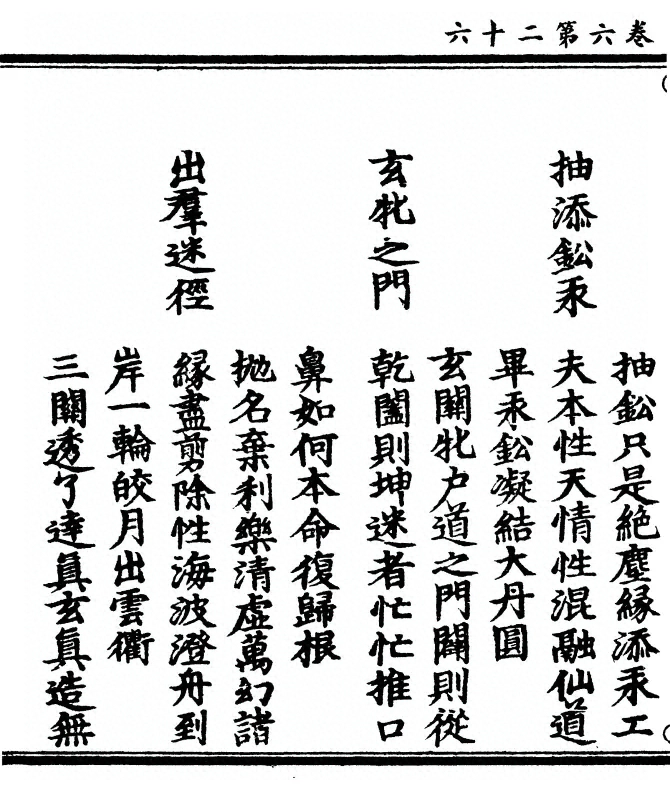 卷六第二十六
抽添鈆汞
抽鈆只是絶塵緣添汞工
夫本性天情性混融仙道
畢汞鈆凝結大丹圓
玄牝之門
玄關牝户道之門闢則從
乾闔則坤迷者忙忙推口
鼻如何本命復歸根
出羣迷徑
拋名棄利樂清虛萬幻諸
緣盡剪除性海波澄舟到
岸一輪皎月出雲衢
三關透了達眞玄眞造無